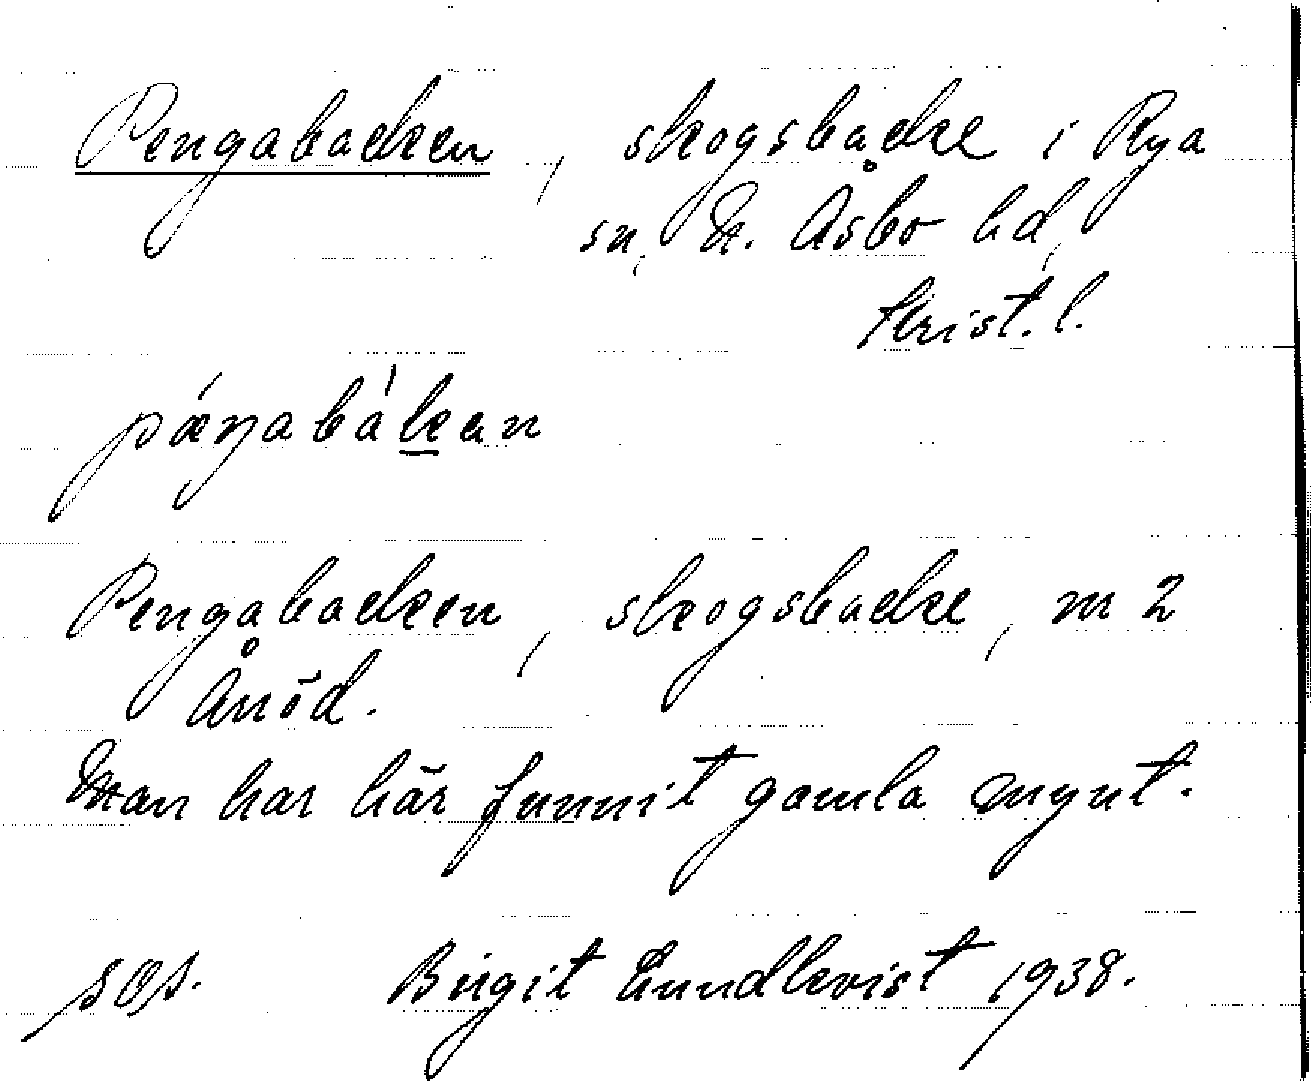 Pengabacken, skogsbacke i Rya
sn, N. Åsbo hd,
Krist. l.
Pengabacken, skogsbacke, nr 2
Änöd.
Man har här funnit gamla mynt.
Birgit Lundkvist 1938.